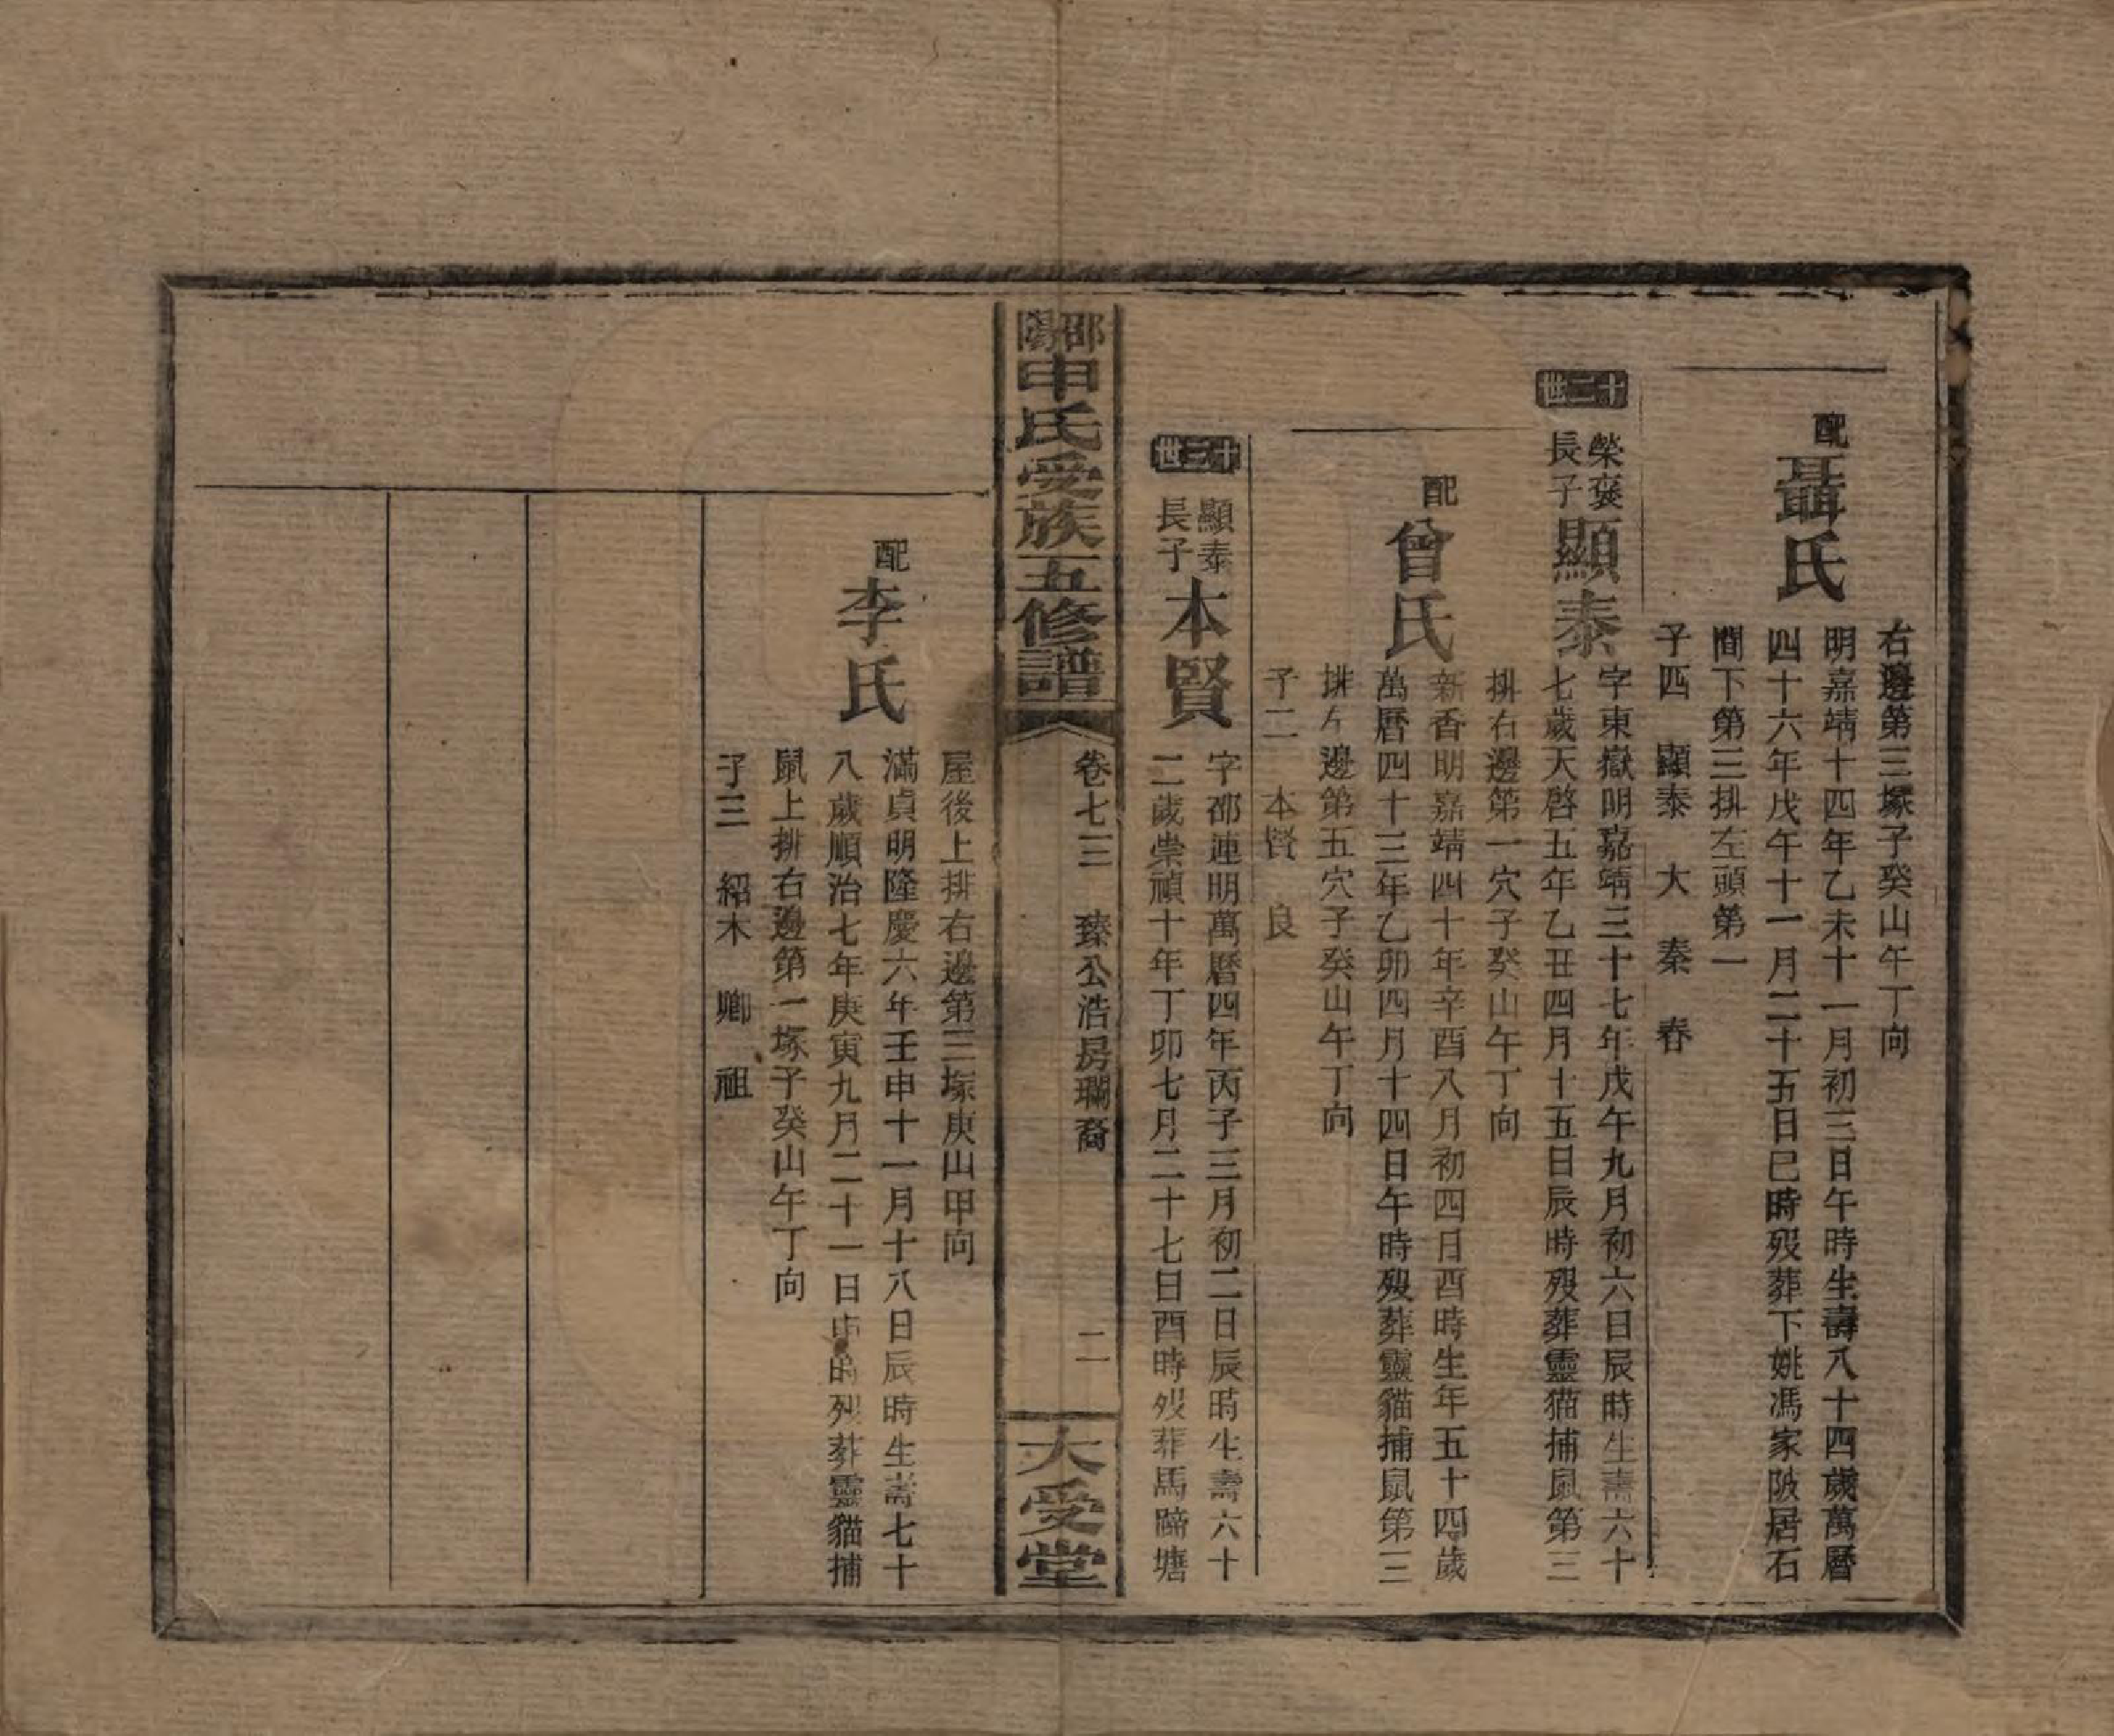 右邊第三塚子癸山午丁向
配聶氏
明嘉靖十四年乙未十一月初三日午時生壽八十四歲萬曆
四十六年戊午十一月二十五日巳時歿葬下姚馮家陂居石
間下第三排左頭第一
子四 顯泰 大 秦 春
十二世
榮褒
長子
顯泰
字東嶽明嘉靖三十七年戊午九月初六日辰時生壽六十
七歲天啓五年乙丑四月十五日辰時歿葬靈猫捕鼠第三
排右邊第一穴子癸山午丁向
配曾氏
新香明嘉靖四十年辛酉八月初四日酉時生年五十四歲
萬曆四十三年乙卯四月十四日午時歿葬靈貓捕鼠第三
排左邊第五穴子癸山午丁向
子二 本賢 良
十三世
顯泰
長子
本賢
字邵連明萬曆四年丙子三月初二日辰時生壽六十
二歲崇禎十年丁卯七月二十七日酉時歿葬馬蹄塘
邵陽申氏受族五修譜
卷七三 臻公浩房瓓裔
二
大受堂
屋後上排右邊第三塚庚山甲向
配李氏
滿貞明隆慶六年壬申十一月十八日辰時生壽七十
八歲順治七年庚寅九月二十一日時歿葬靈貓捕
鼠上排右邊第一塚子癸山午丁向
子三 紹木 卿 祖